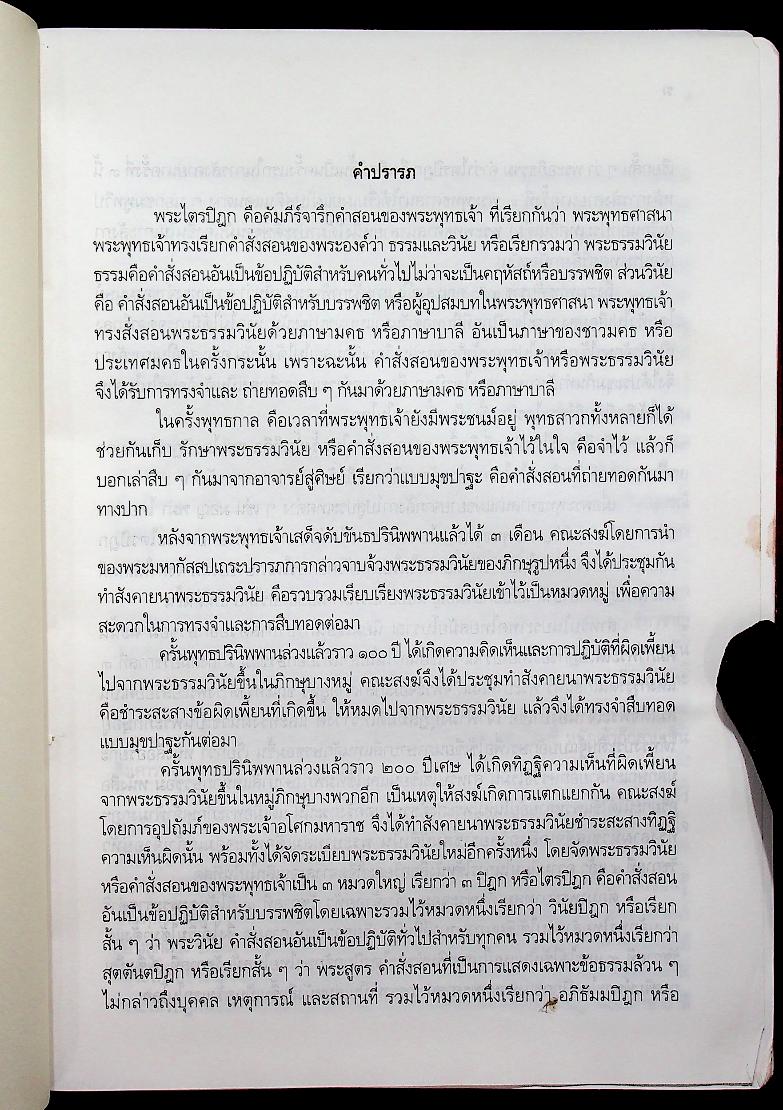 คำปรารภ
พระไตรปิฎก คือคัมภีร์จารึกคำสอนของพระพุทธเจ้า ที่เรียกกันว่า พระพุทธศาสนา
พระพุทธเจ้าทรงเรียกคำสั่งสอนของพระองค์ว่า ธรรมและวินัย หรือเรียกรวมว่า พระธรรมวินัย
ธรรมคือคำสั่งสอนอันเป็นข้อปฏิบัติสำหรับคนทั่วไปไม่ว่าจะเป็นคฤหัสถ์หรือบรรพชิต ส่วนวินัย
คือ คำสั่งสอนอันเป็นข้อปฏิบัติสำหรับบรรพชิต หรือผู้อุปสมบทในพระพุทธศาสนา พระพุทธเจ้า
ทรงสั่งสอนพระธรรมวินัยด้วยภาษามคธ หรือภาษาบาลี อันเป็นภาษาของชาวมคธ หรือ
ประเทศมคธในครั้งกระนั้น เพราะฉะนั้น คำสั่งสอนของพระพุทธเจ้าหรือพระธรรมวินัย
จึงได้รับการทรงจำและ ถ่ายทอดสืบ ๆ กันมาด้วยภาษามคธ หรือภาษาบาลี
ในครั้งพุทธกาล คือเวลาที่พระพุทธเจ้ายังมีพระชนม์อยู่ พุทธสาวกทั้งหลายก็ได้
ช่วยกันเก็บ รักษาพระธรรมวินัย หรือคำสั่งสอนของพระพุทธเจ้าไว้ในใจ คือจำไว้ แล้วก็
บอกเล่าสืบ ๆ กันมาจากอาจารย์สู่ศิษย์ เรียกว่าแบบมุขปาฐะ คือคำสั่งสอนที่ถ่ายทอดกันมา
ทางปาก
หลังจากพระพุทธเจ้าเสด็จดับขันธปรินิพพานแล้วได้ ๓ เดือน คณะสงฆ์โดยการนำ
ของพระมหากัสสปเถระปรารภการกล่าวจาบจ้วงพระธรรมวินัยของภิกษุรูปหนึ่ง จึงได้ประชุมกัน
ทำสังคายนาพระธรรมวินัย คือรวบรวมเรียบเรียงพระธรรมวินัยเข้าไว้เป็นหมวดหมู่ เพื่อความ
สะดวกในการทรงจำและการสืบทอดต่อมา
ครั้นพุทธปรินิพพานล่วงแล้วราว ๑๐๐ ปี ได้เกิดความคิดเห็นและการปฏิบัติที่ผิดเพี้ยน
ไปจากพระธรรมวินัยขึ้นในภิกษุบางหมู่ คณะสงฆ์จึงได้ประชุมทำสังคายนาพระธรรมวินัย
คือชำระสะสางข้อผิดเพี้ยนที่เกิดขึ้น ให้หมดไปจากพระธรรมวินัย แล้วจึงได้ทรงจำสืบทอด
แบบมุขปาฐะกันต่อมา
ครั้นพุทธปรินิพพานล่วงแล้วราว ๒๐๐ ปีเศษ ได้เกิดทิฏฐิความเห็นที่ผิดเพี้ยน
จากพระธรรมวินัยขึ้นในหมู่ภิกษุบางพวกอีก เป็นเหตุให้สงฆ์เกิดการแตกแยกกัน คณะสงฆ์
โดยการอุปถัมภ์ของพระเจ้าอโศกมหาราช จึงได้ทำสังคายนาพระธรรมวินัยชำระสะสางทิฏฐิ
ความเห็นผิดนั้น พร้อมทั้งได้จัดระเบียบพระธรรมวินัยใหม่อีกครั้งหนึ่ง โดยจัดพระธรรมวินัย
หรือคำสั่งสอนของพระพุทธเจ้าเป็น ๓ หมวดใหญ่ เรียกว่า ๓ ปิฎก หรือไตรปิฎก คือคำสั่งสอน
อันเป็นข้อปฏิบัติสำหรับบรรพชิตโดยเฉพาะรวมไว้หมวดหนึ่งเรียกว่า วินัยปิฎก หรือเรียก
สั้น ๆ ว่า พระวินัย คำสั่งสอนอันเป็นข้อปฏิบัติทั่วไปสำหรับทุกคน รวมไว้หมวดหนึ่งเรียกว่า
สุตตันตปิฎก หรือเรียกสั้น ๆ ว่า พระสูตร คำสั่งสอนที่เป็นการแสดงเฉพาะข้อธรรมล้วน ๆ
ไม่กล่าวถึงบุคคล เหตุการณ์ และสถานที่ รวมไว้หมวดหนึ่งเรียกว่า อภิธัมมปิฎก หรือ